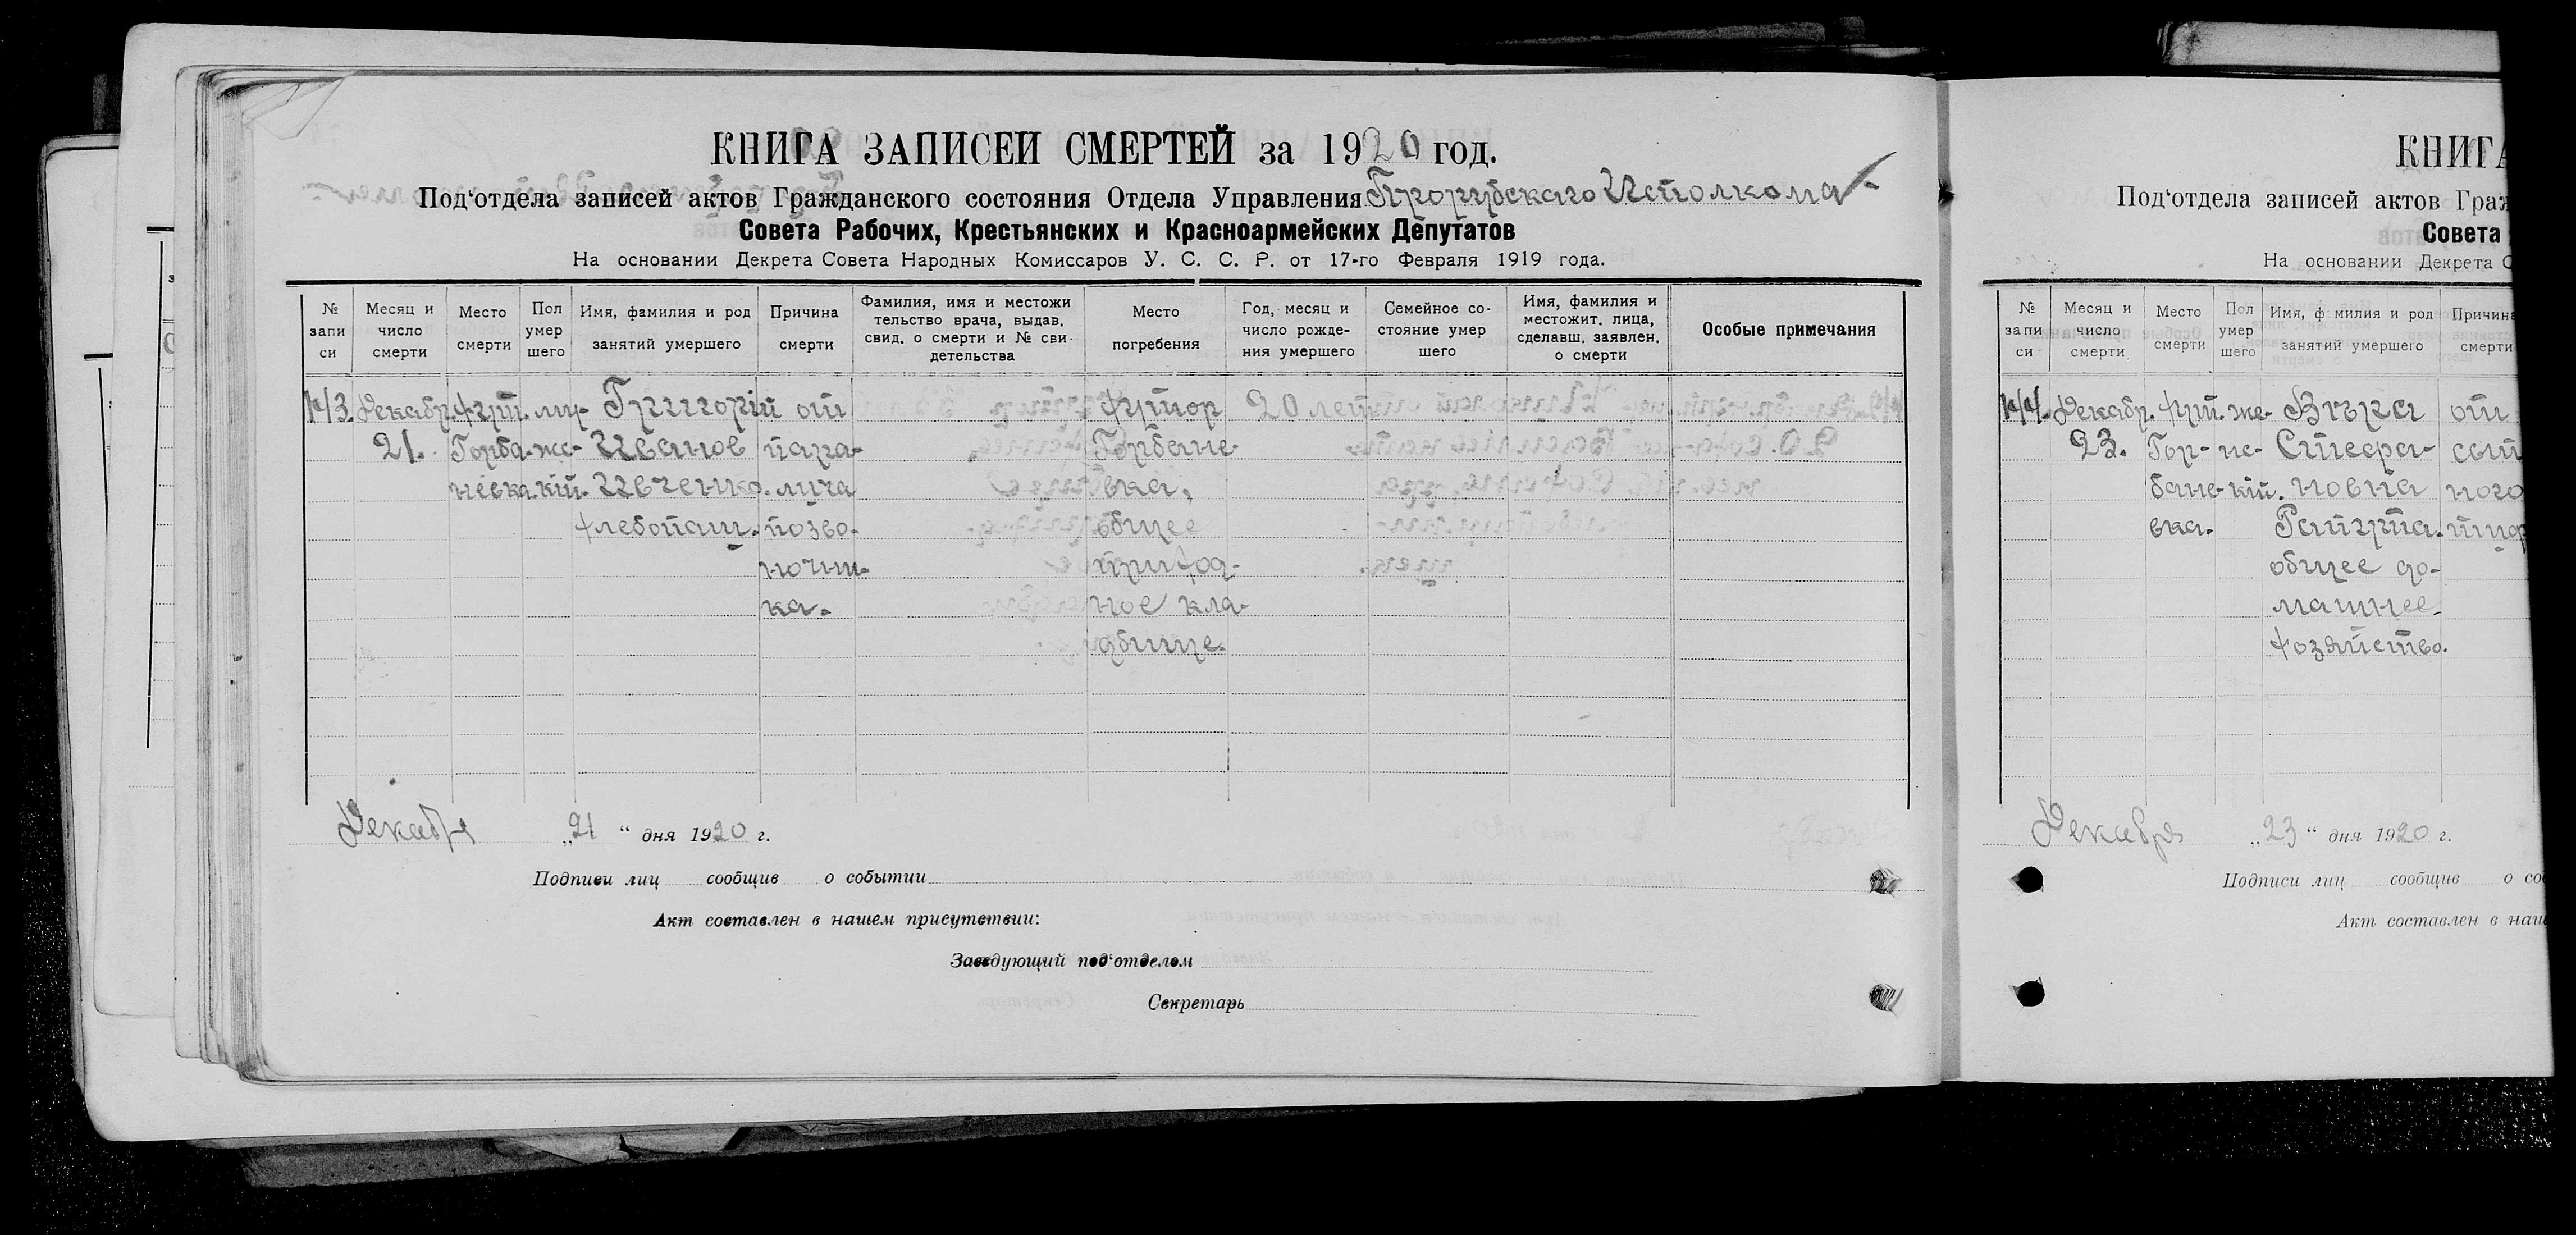 КНИГА ЗАПИСЕЙ СМЕРТЕЙ за 1920 год.
Под‘отдела записей актов Гражданского состояния Отдела Управления Исполкома
Совета Рабочих, Крестьянских и Красноармейских Депутатов
На основании Декрета Совета Народных Комиссаров У. С. С. Р. от 17-го Февраля 1919 года.
№ запи си
Месяц и число смерти
Место смерти
Пол умер шего
Имя, фамилия и род занятий умершего
Причина смерти
Фамилия, имя и местожи тельство врача, выдав. свид. о смерти и № сви- детельства
Место погребения
Год, месяц и число рожде- ния умершего
Семейное со- стояние умер шего
Имя, фамилия и местожит. лица, сделавш. заявлен. о смерти
Особые примечания
Декабр. хут. му- Григорій от хутор 20 лет
21. Горба- же- Иванов пара- Горбане-
невка. кій. Ивченко. лича вка,
хлебопаш. позво- общее
ночни- приход-
ка. ное кла-
дбище.
Декабря „21“ дня 1920 г.
Подписи лиц сообщив о событии
Акт составлен в нашем присутствии:
Заведующий под‘отделом
Секретарь
КНИГА
Под‘отдела записей актов Граж
Совета
На основании Декрета С
№ запи си
Месяц и число смерти
Место смерти
Пол умер шего
Имя, фамилия и род занятий умершего
Причина смерти
Декабр. хут. же- от
23. Гор- не- Стефа-
бане- кій. новна ного
вка.
общее до-
машнее
хозяйство.
Декабря „23“ дня 1920 г.
Подписи лиц сообщив о соб
Акт составлен в наше